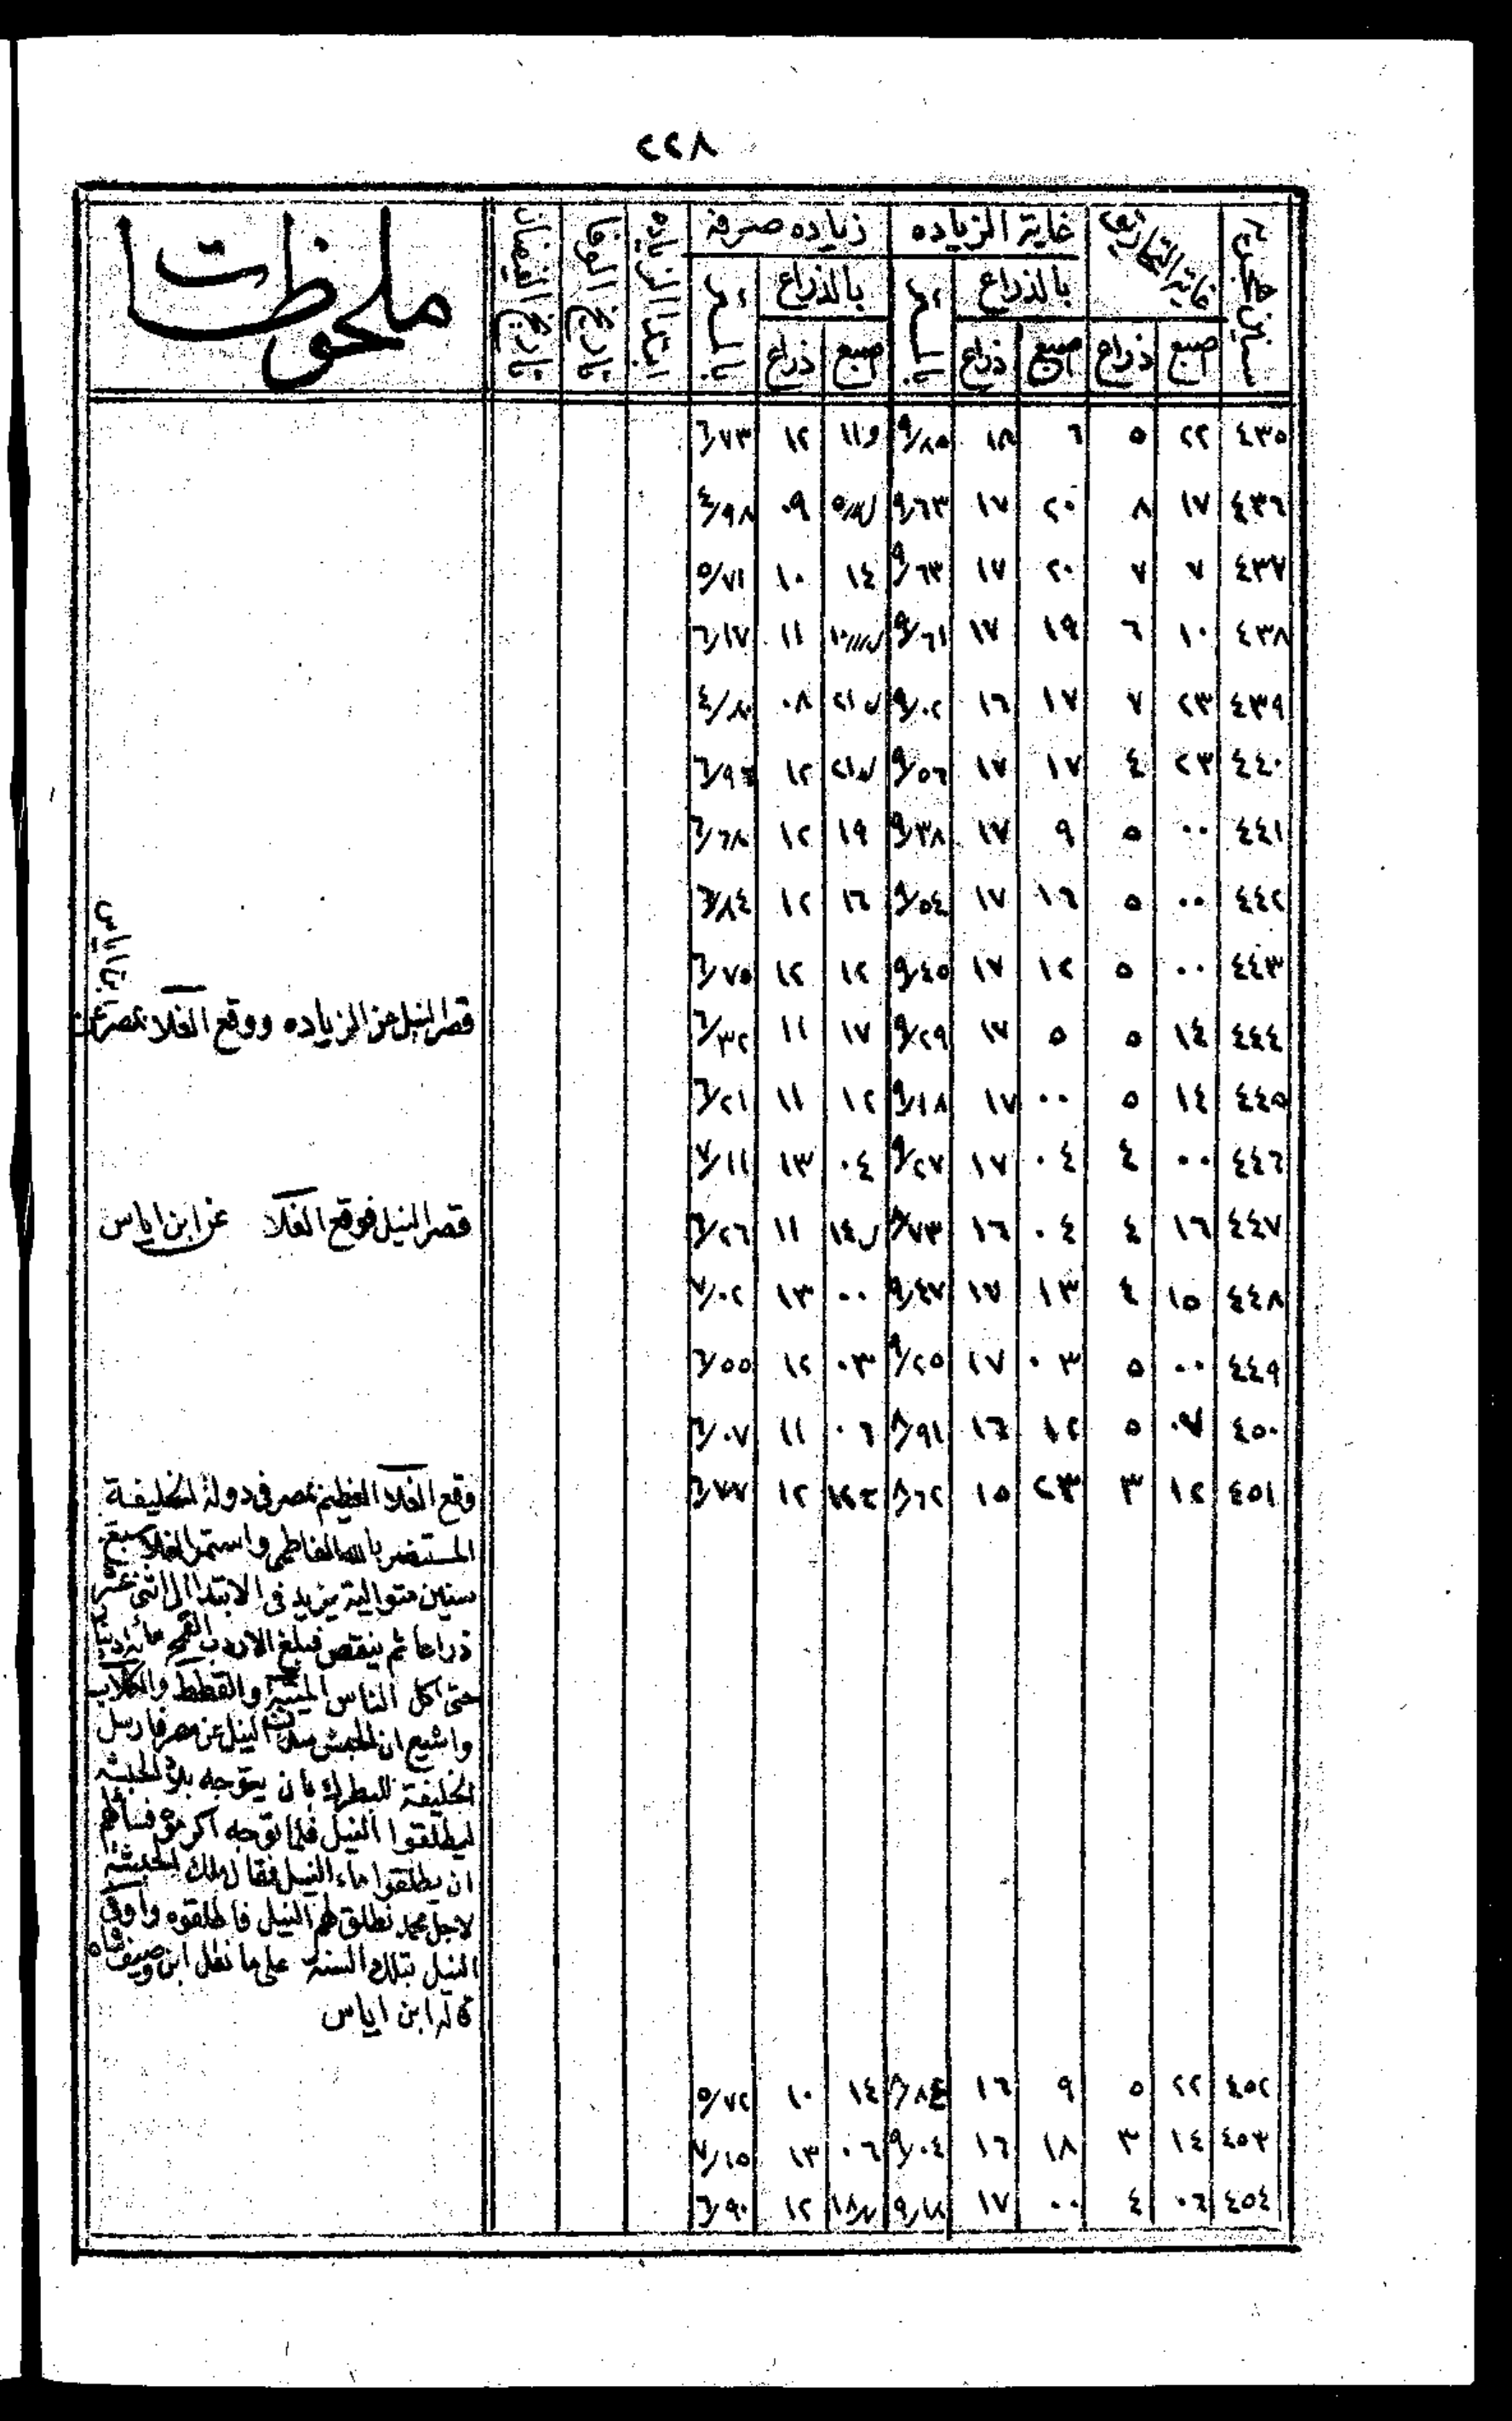 ٢٢٨
سنين هجرية
غاية التحاريق
غاية الزياده
زياده صرفه
ابتدا الزياده
تاريخ الوفا
تاريخ الفيضان
ملحوظات
بالذراع
بالذراع
اصبع ذراع اصبع ذراع اصبع ذراع
٤٣٥ ٢٢ ٥ ٦ ١٨ ٩/٨٥ ١٢ ٦/٧٣
٤٣٦ ١٧ ٨ ٢٠ ١٧ ٩/٦٣ ٠٩ ٤/٩٨
٤٣٧ ٧ ٧ ٢٠ ١٧ ٩/٦٣ ١٤ ١٠ ٥/٧١
٤٣٨ ١٠ ٦ ١٩ ١٧ ٩/٦١ ١١ ٦/١٧
٤٣٩ ٢٣ ٧ ١٧ ١٦ ٩/٠٢ ٠٨ ٤/٨٠
٤٤٠ ٢٣ ٤ ١٧ ١٧ ٩/٥٦ ١٢
٤٤١ ٠٠ ٥ ٩ ١٧ ٩/٣٨ ١٩ ١٢ ٦/٦٨
٤٤٢ ٠٠ ٥ ١٦ ١٧ ٩/٥٤ ١٦ ١٢ ٦/٨٤
٤٤٣ ٠٠ ٥ ١٢ ١٧ ٩/٤٥ ١٢ ١٢ ٦/٧٥
٤٤٤ ١٤ ٥ ٥ ١٧ ٩/٢٩ ١٧ ١١ ٦/٣٢ قصر النيل عن الزياده ووقع الغلا بمصر عن ابن اياس
٤٤٥ ١٤ ٥ ٠٠ ١٧ ٩/١٨ ١٢ ١١ ٦/٢١
٤٤٦ ٠٠ ٤ ٠٤ ١٧ ٩/٢٧ ٠٤ ١٣ ٧/١١
٤٤٧ ١٦ ٤ ٠٤ ١٦ ٨/٧٣ ١٤ ١١ ٦/٢٦ قصر النيل فوقع الغلا عن ابن اياس
٤٤٨ ١٥ ٤ ١٣ ١٧ ٩/٤٧ ٠٠ ١٣ ٧/٠٢
٤٤٩ ٠٠ ٥ ٠٣ ١٧ ٩/٢٥ ٠٣ ١٢ ٦/٥٥
٤٥٠ ٥ ١٢ ١٦ ٨/٩١ ٠٦ ١١ ٦/٠٧
٤٥١ ١٢ ٣ ٢٣ ١٥ ٨/٦٢ ١٢ ٦/٧٧ وقع الغلا العظيم بمصر فى دولة الخليفة
المستنصر بالله الفاطمى واستمر الغلا سبع
سنين متوالية يزيد فى الابتدا الى اثنى عشر
ذراعا ثم ينقص فبلغ الاردب القمح مائة دينار
حتى اكل الناس الميتة والقطط والكلاب
واشيع ان الحبش النيل عن مصر فارسل
الخليفة للبطرك بان يتوجه بلاد الحبشه
ليطلقوا النيل فلما توجه اكرموه فسألهم
ان يطلقوا ماء النيل فقال ملك الحبشه
لاجل محمد نطلق لهم النيل فاطلقوه واوفى
النيل بتلك السنة على ما نقل ابن وصيف شاه
قاله ابن اياس
٤٥٢ ٢٢ ٥ ٩ ١٦ ٨/٨٤ ١٤ ١٠ ٥/٧٢
٤٥٣ ١٤ ٣ ١٨ ١٦ ٩/٠٤ ٠٦ ١٣ ٧/١٥
٤٥٤ ٠٦ ٤ ٠٠ ١٧ ٩/١٨ ١٢ ٦/٩٠